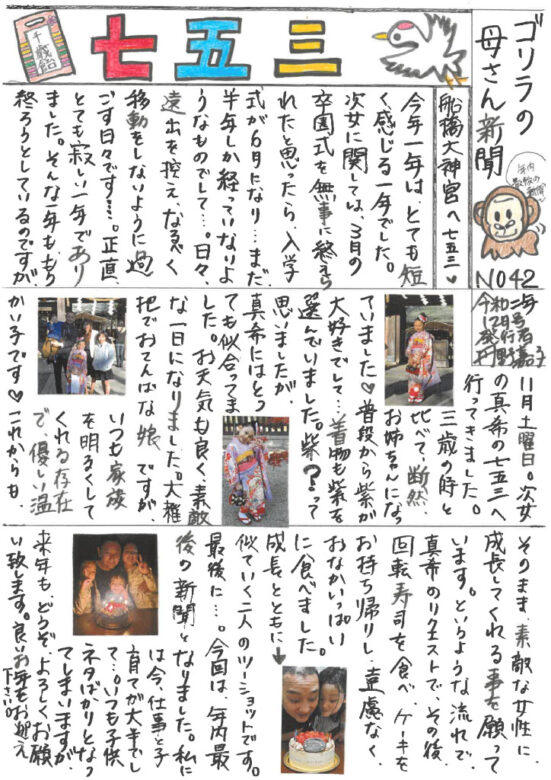 ゴリラの
母さん新聞
年内
最後の新聞
NO42
千歳飴
七五三
船橋大神宮へ七五三♡
今年一年は、とても短
く感じる一年でした。
次女に関しては、3月の
卒園式を無事に終えら
れたと思ったら、入学
式が6月になり…まだ
半年しか経っていないよ
うなものでして…。日々、
遠出を控え、なるべく
移動をしないように過
ごす日々です…。正直、
とても寂しい一年であり
ました。そんな一年ももう
終ろうとしているのですが
11月土曜日。次女
の真希の七五三へ
行ってきました。
三歳の時と
比べて、断然、
お姉ちゃんになっ
ていました♡普段から紫が
大好きでして…着物も紫を
選んでいました。紫?って
思いましたが、
真希にはとっ
ても似合ってま
した。お天気も良く、素敵
な一日になりました。大雑
把でおてんばな娘ですが、
いつも家族
を明るくして
くれる存在
で、優しい温
かい子です♡これからも、
そのまま、素敵な女性に
成長してくれる事を願って
います。というような流れで、
真希のリクエストで、その後、
回転寿司を食べ、ケーキを
お持ち帰りし、遠慮なく、
おなかいっぱい
に食べました。
成長とともに↓
似ていく二人のツーショットです。
最後に…。今回は、年内最
後の新聞となりました。私に
は今、仕事と子
育てが大半でし
て…。いつも子供
ネタばかりとなっ
てしまいますが、
来年も、どうぞ、よろしくお願
い致します。良いお年をお迎え
下さい。